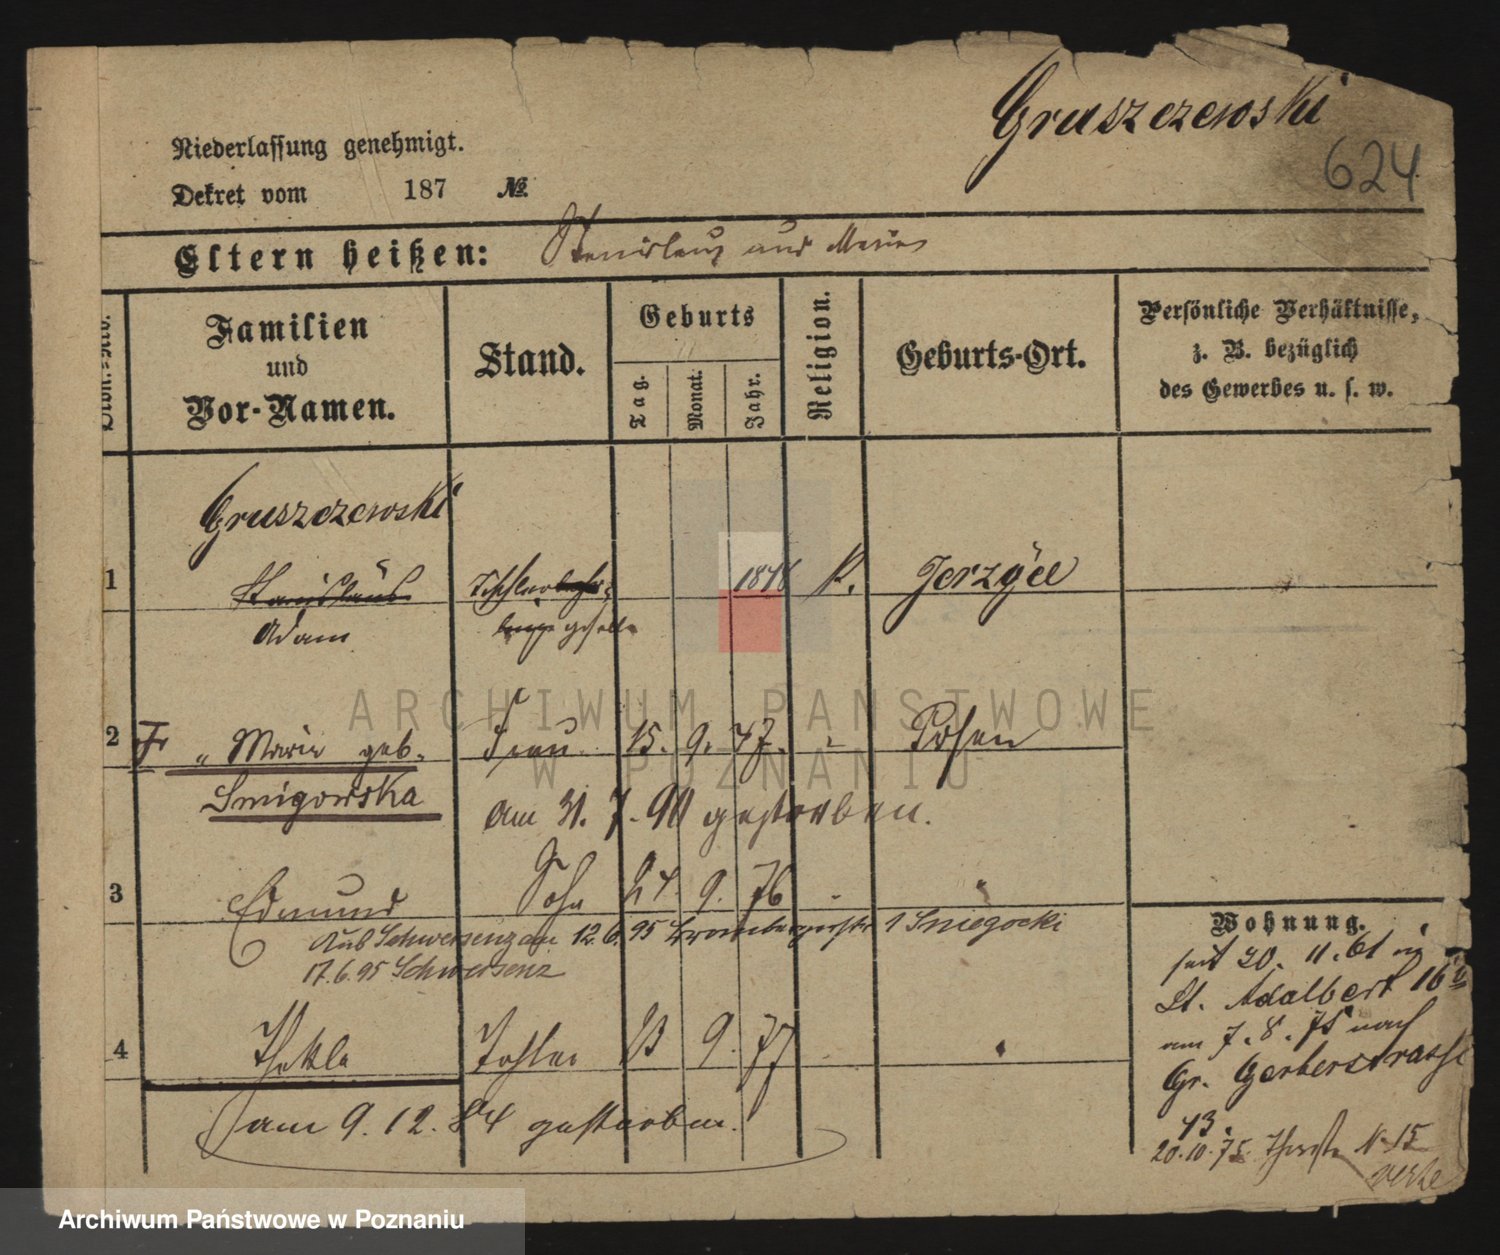 Gruszczewski
624
Niederlassung genehmigt.
Dekret vom 187 №
Eltern heißen: Stanislaus und Maria
Familien und Vor-Namen.
Stand.
Geburts
Tag.
Monat.
Jahr.
Religion.
Geburts-Ort.
Persönliche Verhältnisse,
z. B. bezüglich
des Gewerbes u. s. w.
Gruszczewski
1 Stanislaus Tischler 1848 K. Jerzyce
Adam geselle
2 F " Maria geb. Frau 15. 9. 47. Posen
Smigorska
am 31. 7. 90 gestorben.
3 Edmund Sohn 24. 9. 76 "
Aus Schwersenz am 12.6.95 Brombergerstr 1 Sniegocki
17.6.95 Schwersenz
4 Thekla Tochter 23 9. 77
am 9. 12. 84 gestorben.
Wohnung.
seit 20. 11. 61 in
St. Adalbert 16
am 7. 8. 75 nach
Gr. Gerberstrasse
43.
20. 10. 75. N 15
ARCHIWUM PAŃSTWOWE
W POZNANIU
Archiwum Państwowe w Poznaniu